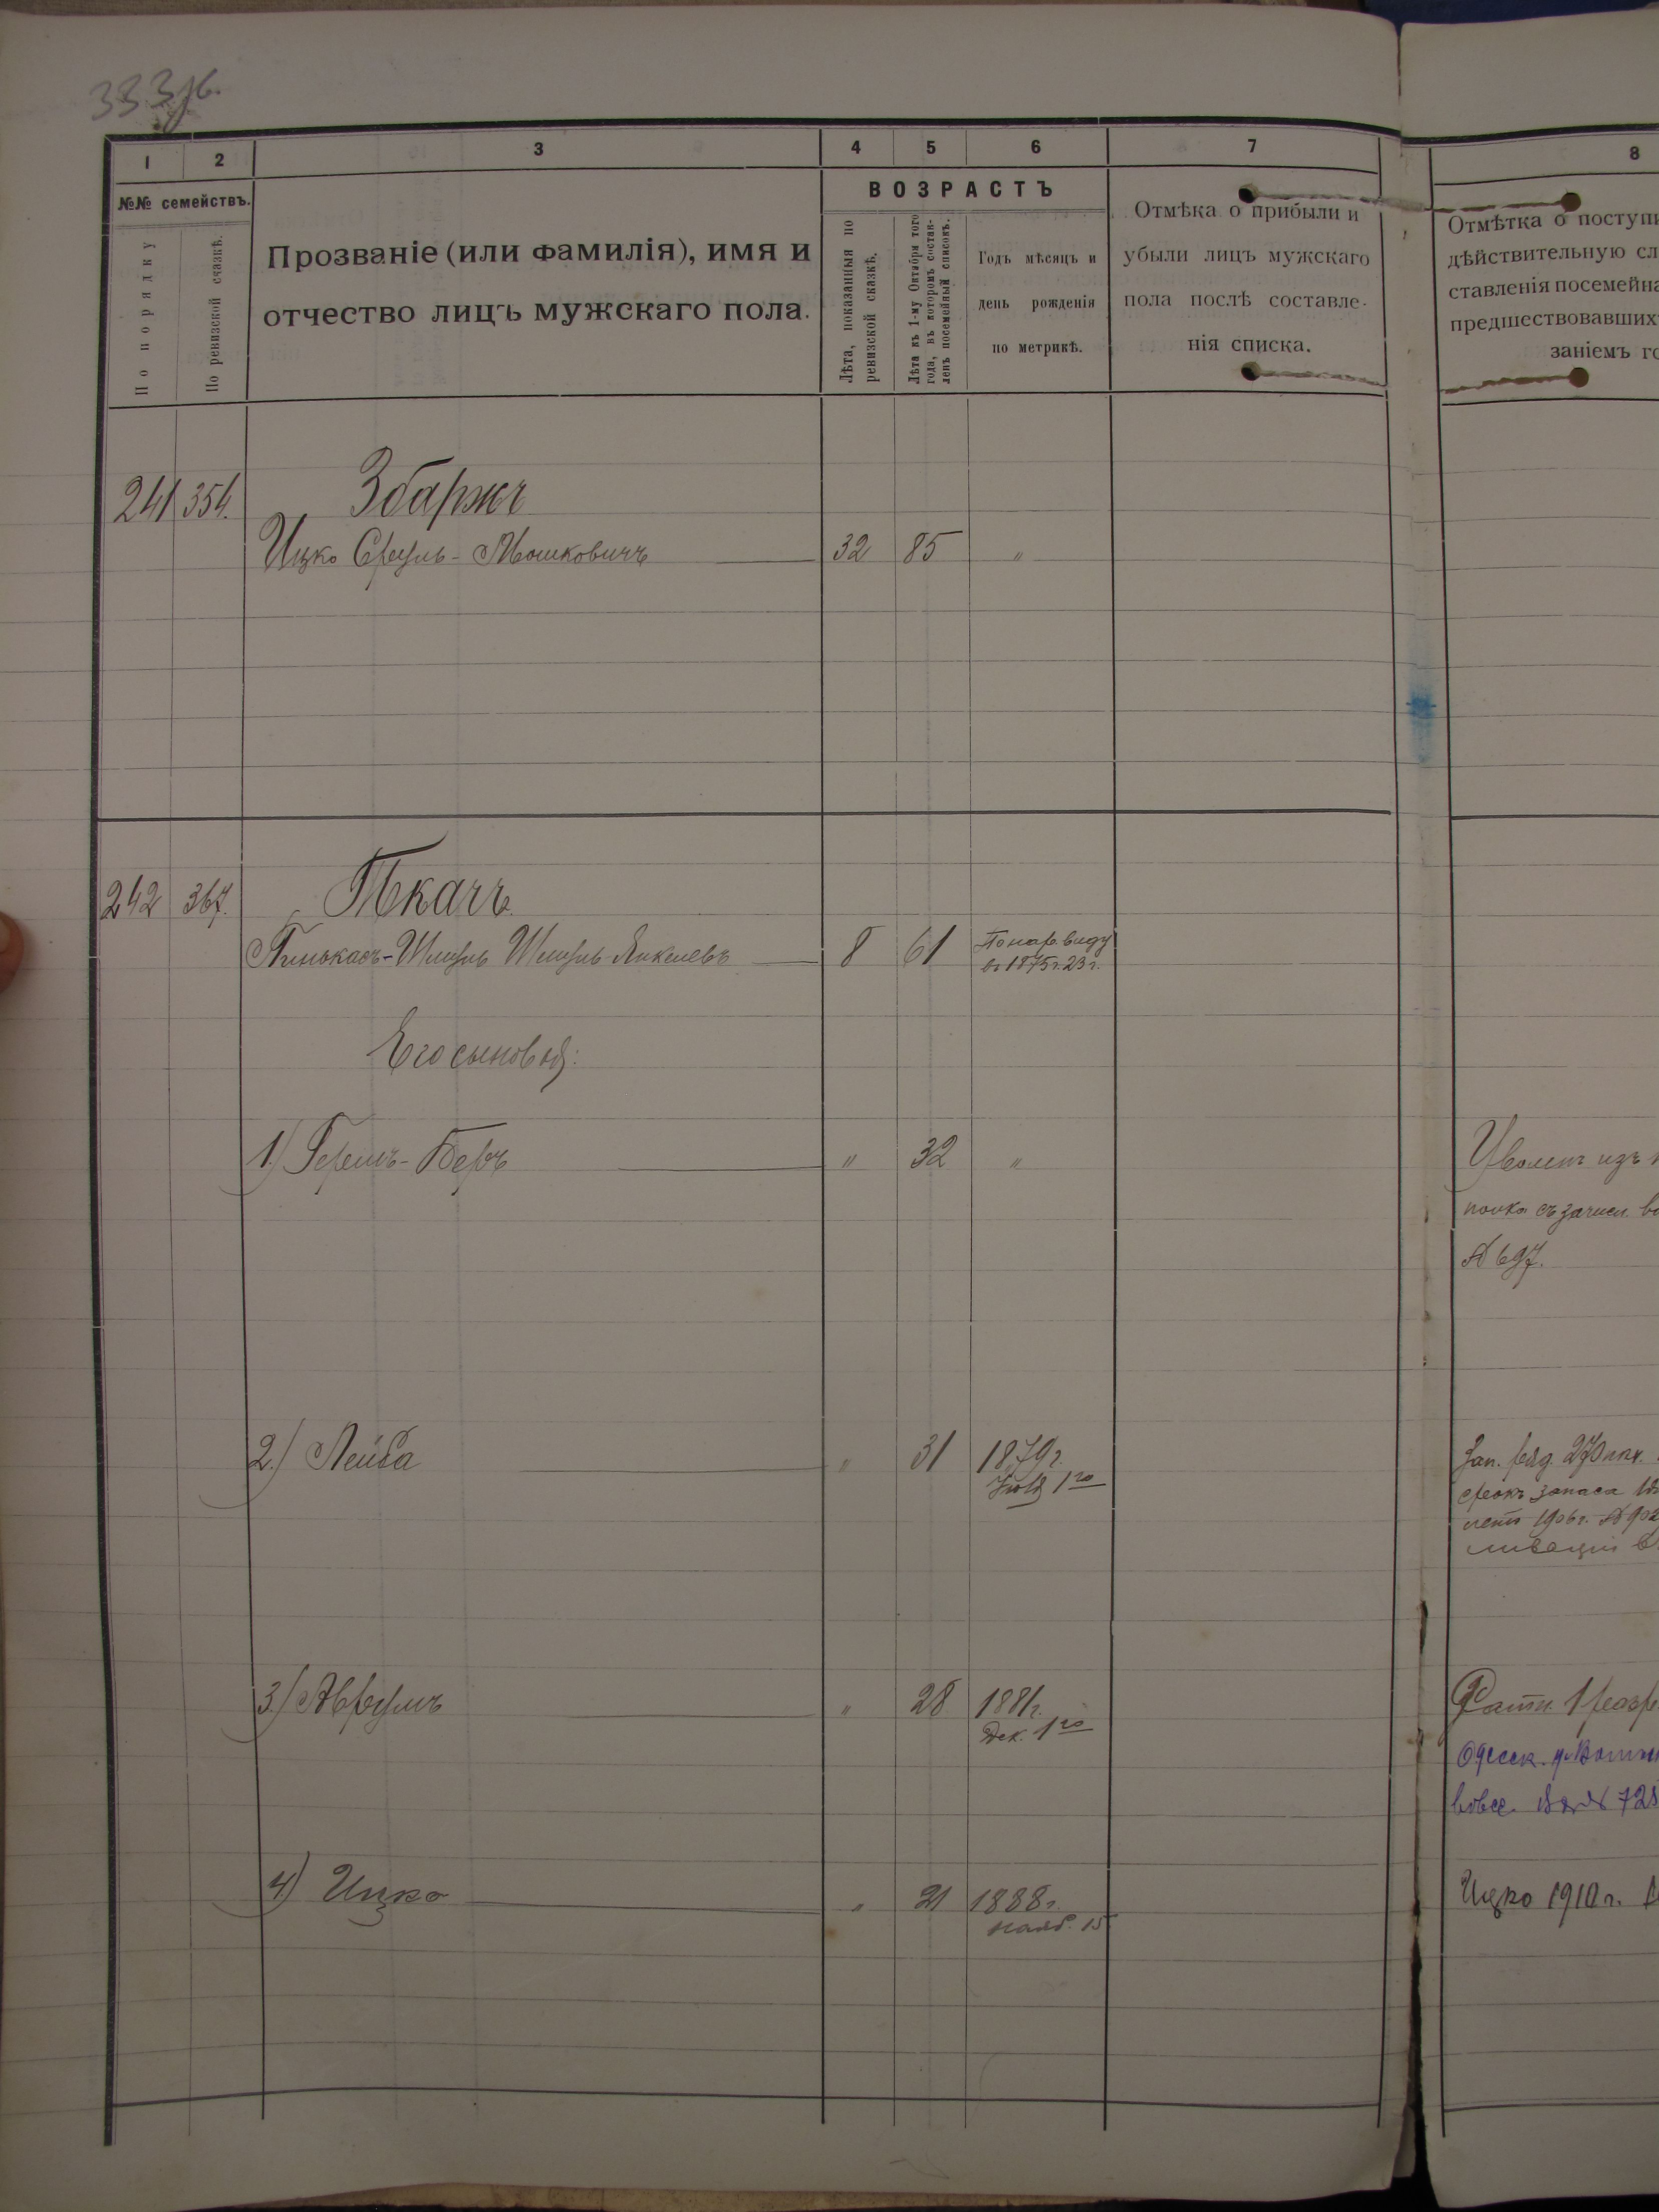 333об.
1 2 3 4 5 6 7 8
№№ семействъ.
По порядку
По ревизской сказкѣ.
Прозваніе (или фамилія), имя и
отчество лицъ мужскаго пола.
ВОЗРАСТЪ
Лѣта, показанныя по
ревизской сказкѣ.
Лѣта къ 1-му Октября того
года, въ которомъ состав-
ленъ посемейный списокъ.
Годъ мѣсяцъ и
день рожденія
по метрикѣ.
Отмѣка о прибыли и
убыли лицъ мужскаго
пола послѣ составле-
нія списка.
Отмѣтка о поступи
дѣйствительную сл
ставленія посемейна
предшествовавших
заніемъ го
241 354. Збаржъ
Ицко Сруль-Мошковичъ 32 85 "
242 367. Ткачъ
Пинькасъ-Шмуль Шмуль-Янкелевъ 8 61 По нар. виду
въ 1875 г. 23 г.
Его сыновья:
1.) Гершъ-Беръ " 32 "
Уволенъ изъ
полка съ зачисл. в
№ 697.
2.) Лейба " 31 1879 г.
Іюля 1го
Зап. ряд. 270 пѣх.
срокъ запаса
1906 г. № 902
3.) Аврумъ " 28 1881 г.
Дек. 1го
Ратн. 1 разр
Одесск. у. Воинск
№ 728
4) Ицко " 21 1888 г.
Нояб. 15
Ицко 1910 г.